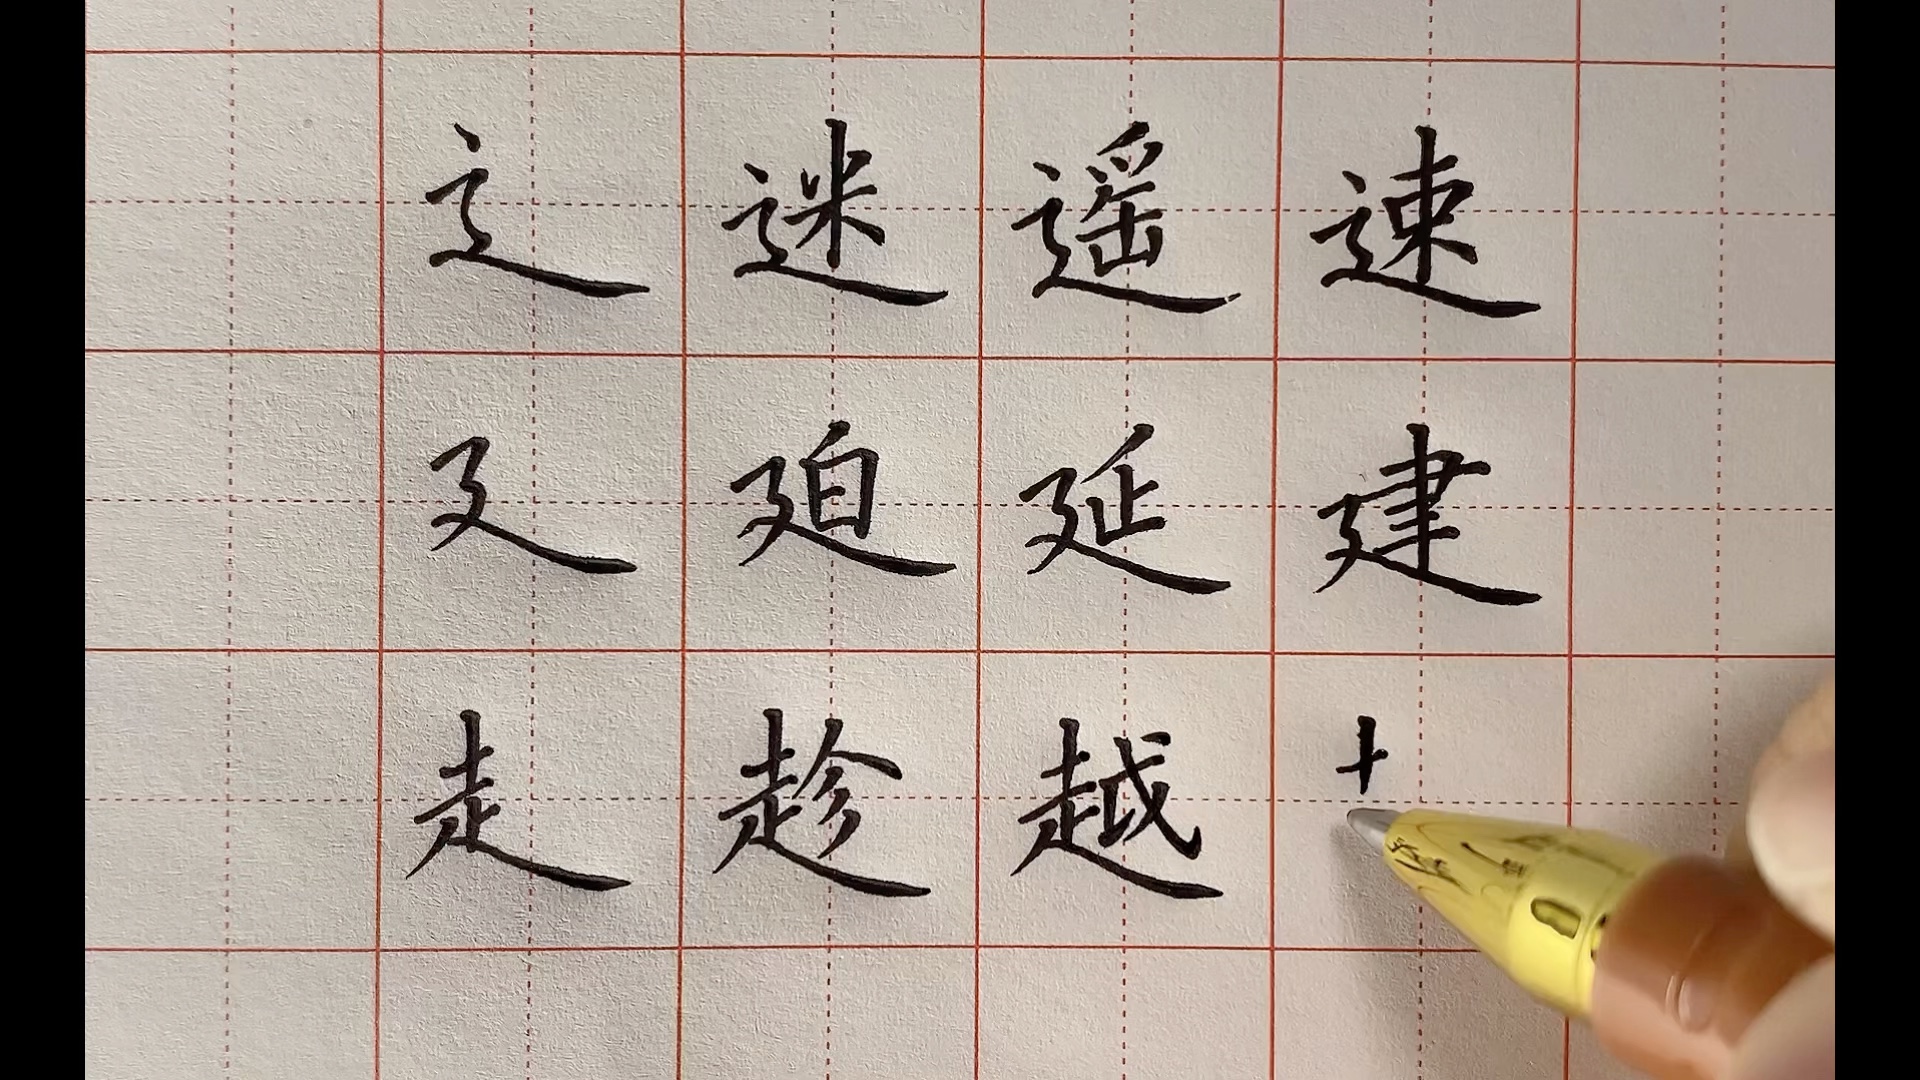 辶迷遥速
廴廹延建
走趁越十